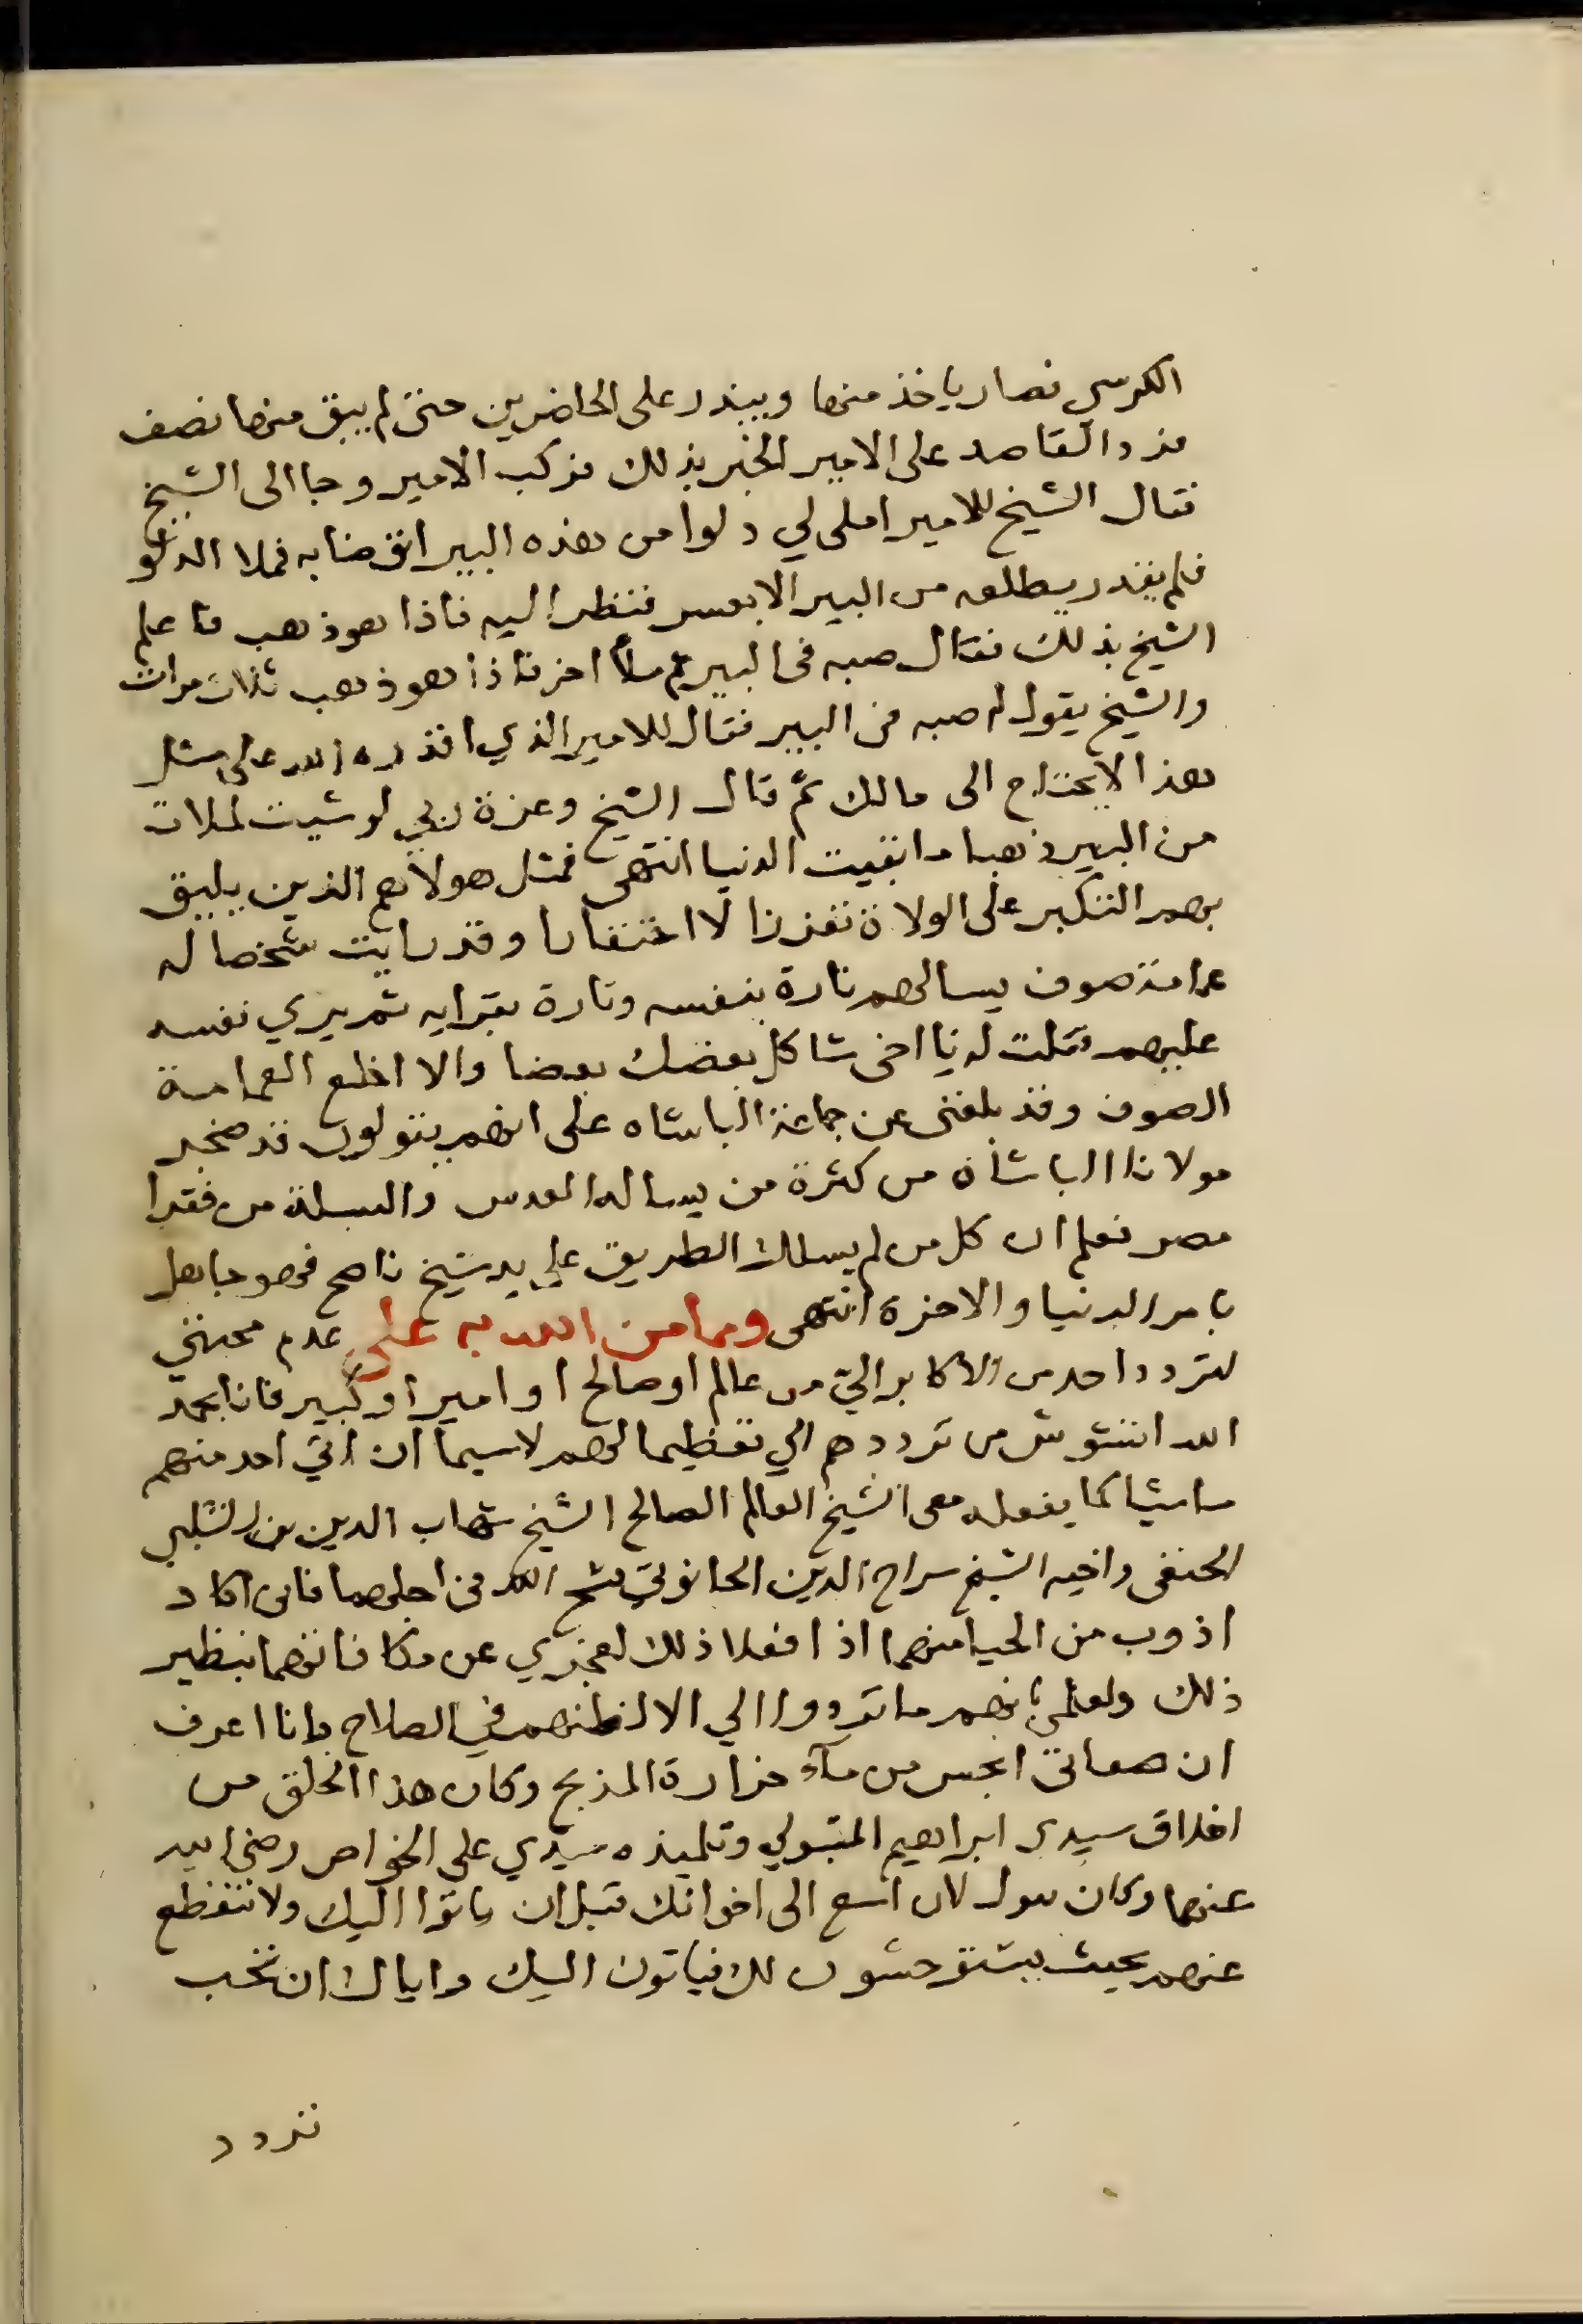 الكرسي فصار ياخذ منها ويبندر على الحاضرين حتى لم يبق منها نصف
فرد القاصد على الامير الخبر بذلك فركب الامير وجا الى الشيخ
فقال الشيخ للامير املى لي دلوا من هذه البير اتوضا به فملا الدلو
فلم يقدر يطلعه من البير الا بعسر فنظر اليه فاذا هو ذهب فاعلم
الشيخ بذلك فقال صبه في البير ثم ملأ اخر فاذا هو ذهب ثلاث مرات
والشيخ يقول له صبه في البير فقال للامير الذي اقدره الله على مثل
هذا لا يحتاج الى مالك ثم قال الشيخ وعزة ربي لو شيت لملات
من البير ذهبا ما بقيت الدنيا انتهى فمثل هولا هم الذين يليق
بهم التكبر على الولاة تعززا لا احتقارا وقد رايت شخصا له
عمامة صوف يسالهم تارة بنفسه وتارة بقرايه ثم يري نفسه
عليهم فقلت له يا اخى شاكل بعضك بعضا والا اخلع العمامة
الصوف وقد بلغنى عن جماعة الباشاه على انهم يقولون قد ضجر
مولانا الباشاة من كثرة من يساله العدس والبسلة من فقرا
مصر فعلم ان كل من لم يسلك الطريق على يد شيخ ناصح فهو جاهل
بامر الدنيا والاخرة انتهى ومما من الله به علي عدم محبتي
لتردد احد من الاكابر اليّ من عالم او صالح او امير او كبير فانا بحمد
الله اتشوش من ترددهم الي تعظيما لهم لاسيما ان اتي احد منهم
ماشيا كما يفعله معى الشيخ العالم الصالح الشيخ شهاب الدين بن الشلبي
الحنفى واخيه الشيخ سراج الدين الحانوتي فسح الله في اجلهما فانى اكاد
اذوب من الحيا منهما اذا فعلا ذلك لعجزي عن مكافاتهما بنظير
ذلك ولعلمى بانهم ما ترددوا الي الا لظنهم في الصلاح وانا اعرف
ان صفاتى انجس من مآء خرارة المذبح وكان هذا الخلق من
اخلاق سيدى ابراهيم المتبولي وتلميذه سيدي على الخواص رضي الله
عنهما وكان يقول لان اسع الى اخوانك قبل ان ياتوا اليك ولا تنقطع
عنهم بحيث يستوحشون لك فياتون اليك واياك ان تحب
تردد